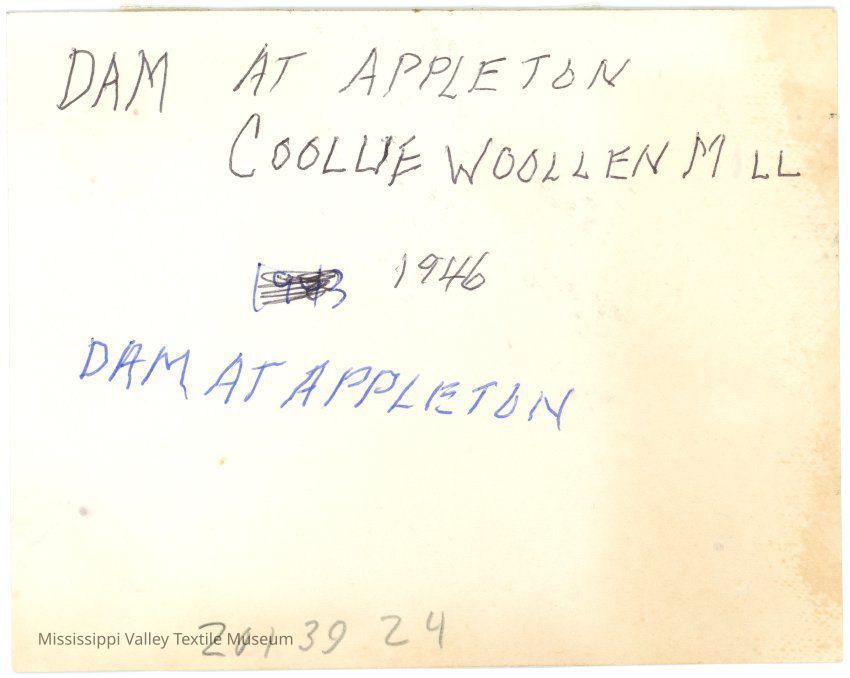 DAM AT APPLETON
COOLLIE WOOLLEN MILL
1943 1946
DAM AT APPLETON
Mississippi Valley Textile Museum
39 24